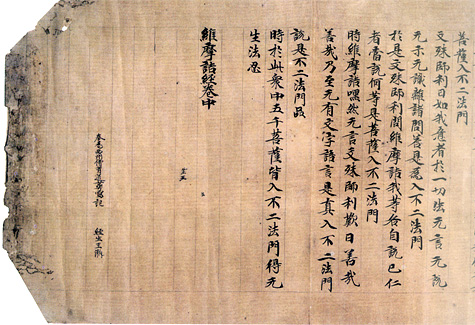 菩薩入不二門
文殊師利曰如我意者於一切法无言无說
无示无識離諸問荅是爲入不二法門
於是文殊師利問維摩詰我等各自說已仁
者當說何等是菩薩入不二法門
時維摩詰嘿然无言文殊師利歎曰善哉
善哉乃至无有文字語言是真入不二法門
說是不二法門品
時於此衆中五千菩薩皆入不二法門得无
生法忍
維摩詰經卷中
經生王